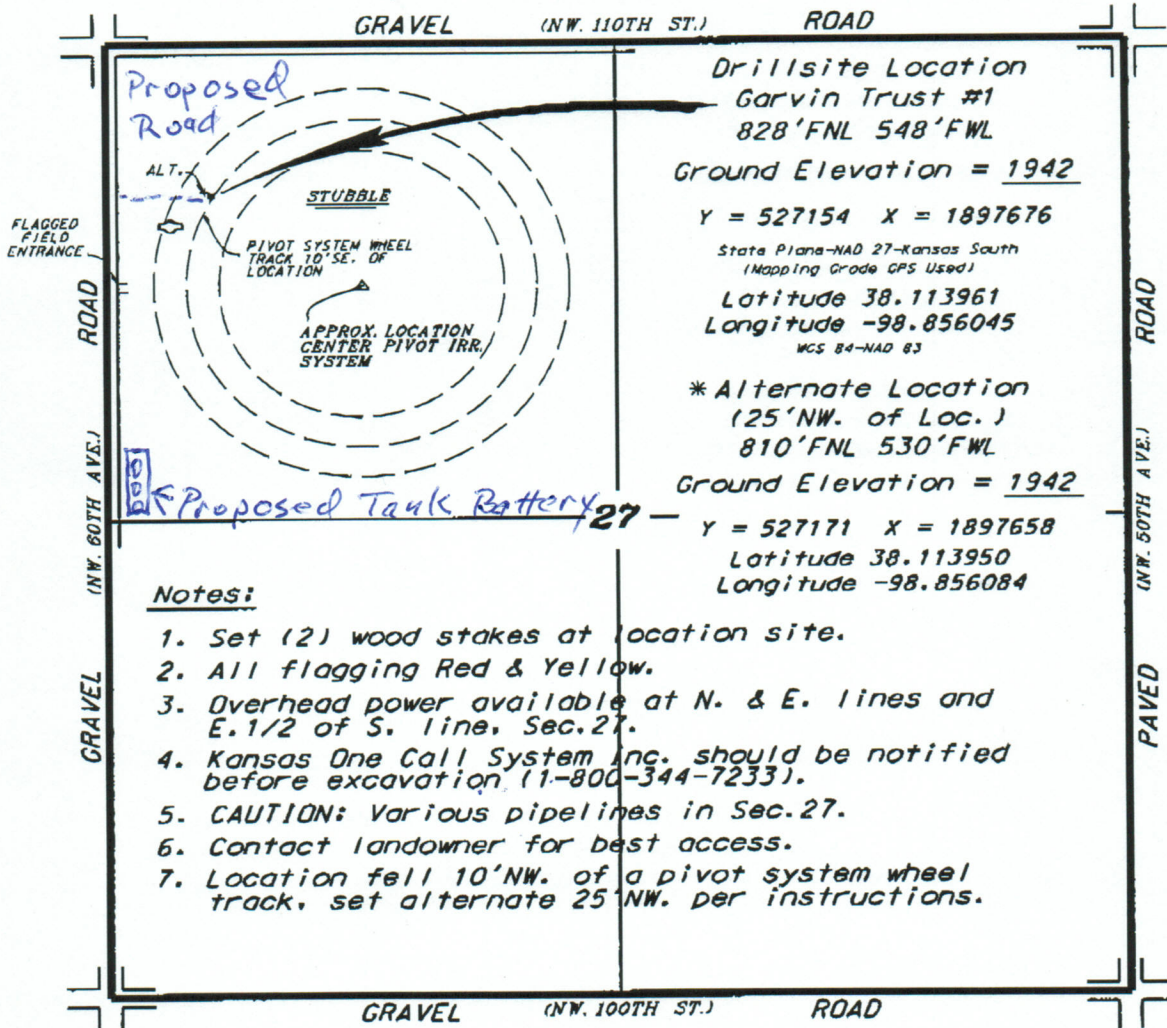 GRAVEL (NW. 110TH ST.) ROAD
Proposed
Road
ALT.
STUBBLE
FLAGGED
FIELD
ENTRANCE
PIVOT SYSTEM WHEEL
TRACK 10'SE. OF
LOCATION
APPROX. LOCATION
CENTER PIVOT IRR.
SYSTEM
Drillsite Location
Garvin Trust #1
828'FNL 548'FWL
Ground Elevation = 1942
Y = 527154 X = 1897676
State Plane-NAD 27-Kansas South
(Mapping Grade GPS Used)
Latitude 38.113961
Longitude -98.856045
WGS 84-NAD 83
* Alternate Location
(25'NW. of Loc.)
810'FNL 530'FWL
Ground Elevation = 1942
Y = 527171 X = 1897658
Latitude 38.113950
Longitude -98.856084
Proposed Tank Battery
27
GRAVEL (NW. 60TH AVE.) ROAD
PAVED (NW. 50TH AVE.) ROAD
Notes:
1. Set (2) wood stakes at location site.
2. All flagging Red & Yellow.
3. Overhead power available at N. & E. lines and
E.1/2 of S. line, Sec.27.
4. Kansas One Call System Inc. should be notified
before excavation (1-800-344-7233).
5. CAUTION: Various pipelines in Sec.27.
6. Contact landowner for best access.
7. Location fell 10'NW. of a pivot system wheel
track, set alternate 25'NW. per instructions.
GRAVEL (NW. 100TH ST.) ROAD